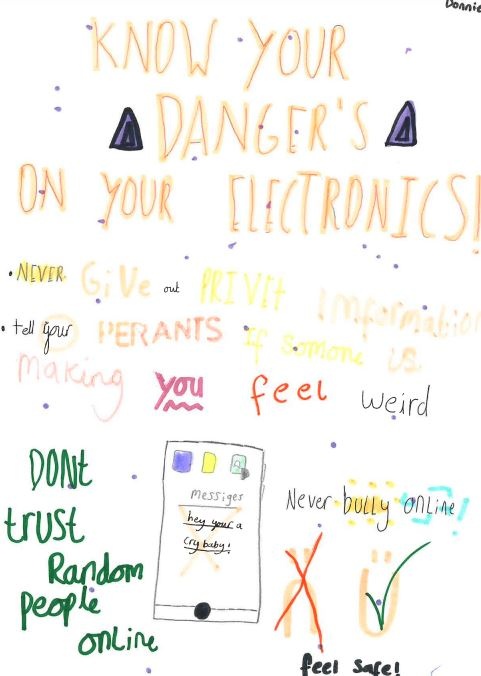 Donnie
KNOW YOUR
DANGER'S
ON YOUR ELECTRONICS!
• NEVER GiVe out PRIVET Informatio
• tell your PERANTS If somone is
making you feel weird
DONt
trust
Random
people
online
Messiges
hey your a
cry baby!
Never bully online!
feel safe!